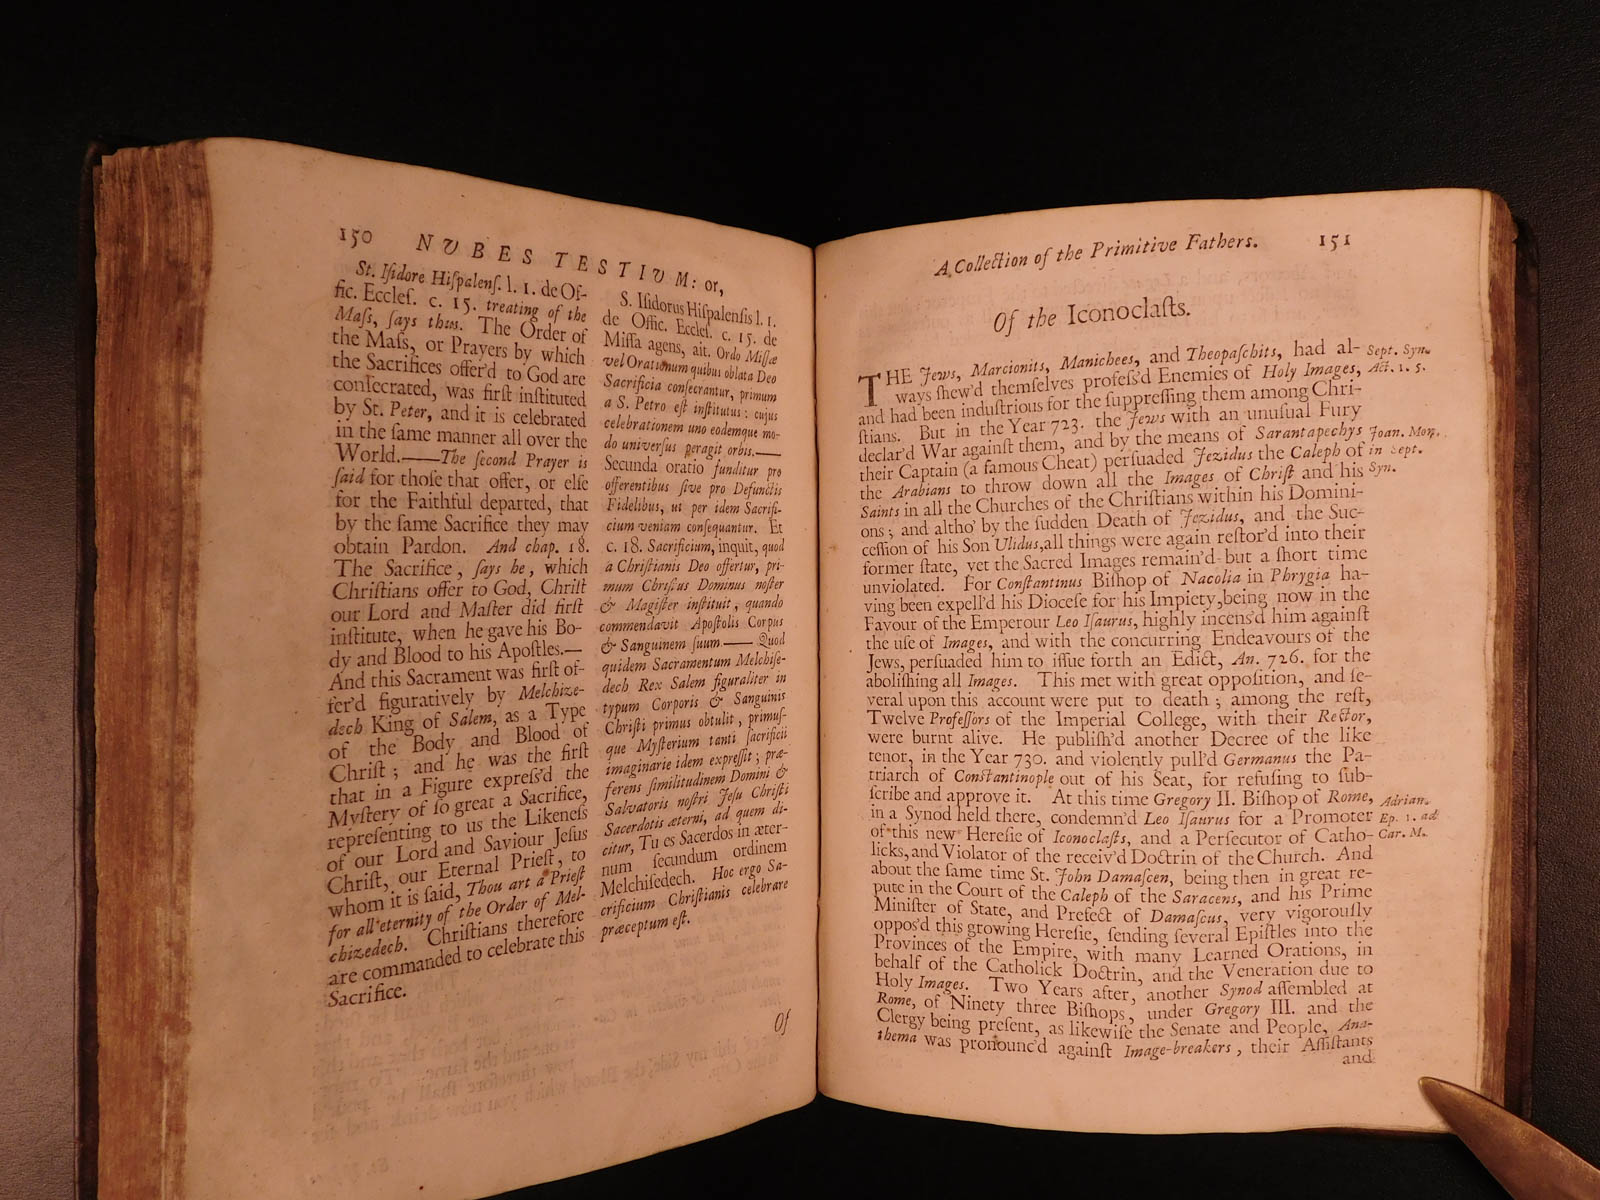 150 NVBES TESTIVM: or,
St. Iſidore Hiſpalenſ. l. 1. de Of-
fic. Eccleſ. c. 15. treating of the
Maſs, ſays thus. The Order of
the Maſs, or Prayers by which
the Sacrifices offer'd to God are
conſecrated, was firſt inſtituted
by St. Peter, and it is celebrated
in the ſame manner all over the
World.——The ſecond Prayer is
ſaid for thoſe that offer, or elſe
for the Faithful departed, that
by the ſame Sacrifice they may
obtain Pardon. And chap. 18.
The Sacrifice, ſays he, which
Chriſtians offer to God, Chriſt
our Lord and Maſter did firſt
inſtitute, when he gave his Bo-
dy and Blood to his Apoſtles.—
And this Sacrament was firſt of-
fer'd figuratively by Melchize-
dech King of Salem, as a Type
of the Body and Blood of
Chriſt; and he was the firſt
that in a Figure expreſs'd the
Myſtery of ſo great a Sacrifice,
repreſenting to us the Likeneſs
of our Lord and Saviour Jeſus
Chriſt, our Eternal Prieſt, to
whom it is ſaid, Thou art a Prieſt
for all eternity of the Order of Mel-
chizedech. Chriſtians therefore
are commanded to celebrate this
Sacrifice.
S. Iſidorus Hiſpalenſis l. 1.
de Offic. Eccleſ. c. 15. de
Miſſa agens, ait. Ordo Miſſæ
vel Orationum quibus oblata Deo
Sacrificia conſecrantur, primum
a S. Petro eſt inſtitutus: cujus
celebrationem uno eodemque mo-
do univerſus peragit orbis.——
Secunda oratio funditur pro
offerentibus ſive pro Defunctis
Fidelibus, ut per idem Sacrifi-
cium veniam conſequantur. Et
c. 18. Sacrificium, inquit, quod
a Chriſtianis Deo offertur, pri-
mum Chriſtus Dominus noſter
& Magiſter inſtituit, quando
commendavit Apoſtolis Corpus
& Sanguinem ſuum.—— Quod
quidem Sacramentum Melchiſe-
dech Rex Salem figuraliter in
typum Corporis & Sanguinis
Chriſti primus obtulit, primuſ-
que Myſterium tanti ſacrificii
imaginarie idem expreſſit; præ-
ferens ſimilitudinem Domini &
Salvatoris noſtri Jeſu Chriſti
Sacerdotis æterni, ad quem di-
citur, Tu es Sacerdos in æter-
num ſecundum ordinem
Melchiſedech. Hoc ergo Sa-
crificium Chriſtianis celebrare
præceptum eſt.
Of
A Collection of the Primitive Fathers. 151
Of the Iconoclaſts.
THE Jews, Marcionits, Manichees, and Theopaſchits, had al-
ways ſhew'd themſelves profeſs'd Enemies of Holy Images,
and had been induſtrious for the ſuppreſſing them among Chri-
ſtians. But in the Year 723. the Jews with an unuſual Fury
declar'd War againſt them, and by the means of Sarantapechys
their Captain (a famous Cheat) perſuaded Jezidus the Caleph of
the Arabians to throw down all the Images of Chriſt and his
Saints in all the Churches of the Chriſtians within his Domini-
ons; and altho' by the ſudden Death of Jezidus, and the Suc-
ceſſion of his Son Ulidus, all things were again reſtor'd into their
former ſtate, yet the Sacred Images remain'd but a ſhort time
unviolated. For Conſtantinus Biſhop of Nacolia in Phrygia ha-
ving been expell'd his Dioceſe for his Impiety, being now in the
Favour of the Emperour Leo Iſaurus, highly incens'd him againſt
the uſe of Images, and with the concurring Endeavours of the
Jews, perſuaded him to iſſue forth an Edict, An. 726. for the
aboliſhing all Images. This met with great oppoſition, and ſe-
veral upon this account were put to death; among the reſt,
Twelve Profeſſors of the Imperial College, with their Rector,
were burnt alive. He publiſh'd another Decree of the like
tenor, in the Year 730. and violently pull'd Germanus the Pa-
triarch of Conſtantinople out of his Seat, for refuſing to ſub-
ſcribe and approve it. At this time Gregory II. Biſhop of Rome,
in a Synod held there, condemn'd Leo Iſaurus for a Promoter
of this new Hereſie of Iconoclaſts, and a Perſecutor of Catho-
licks, and Violator of the receiv'd Doctrin of the Church. And
about the ſame time St. John Damaſcen, being then in great re-
pute in the Court of the Caleph of the Saracens, and his Prime
Miniſter of State, and Prefect of Damaſcus, very vigorouſly
oppos'd this growing Hereſie, ſending ſeveral Epiſtles into the
Provinces of the Empire, with many Learned Orations, in
behalf of the Catholick Doctrin, and the Veneration due to
Holy Images. Two Years after, another Synod aſſembled at
Rome, of Ninety three Biſhops, under Gregory III. and the
Clergy being preſent, as likewiſe the Senate and People, Ana-
thema was pronounc'd againſt Image-breakers, their Aſſiſtants
and
Sept. Syn.
Act. 1. 5.
Joan. Mon.
in Sept.
Syn.
Adrian.
Ep. 1. ad
Car. M.